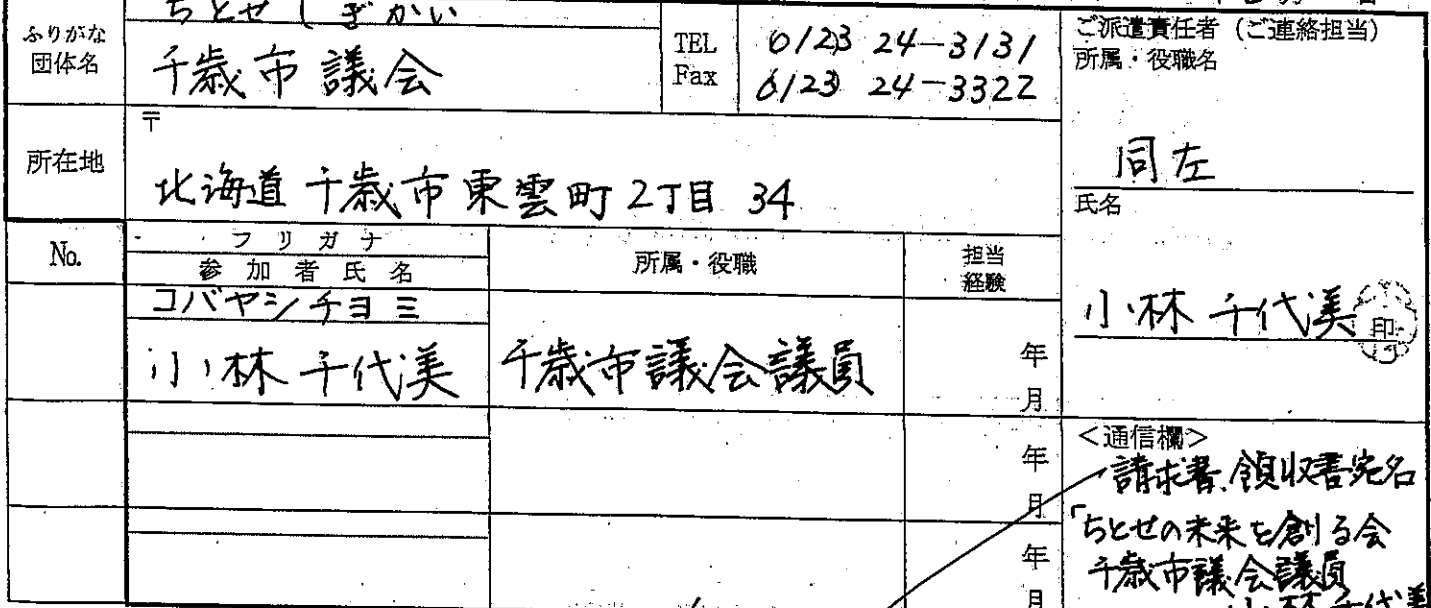 ふりがな
団体名
ちとせしぎかい
千歳市議会
TEL 0123 24-3131
Fax 0123 24-3322
ご派遣責任者（ご連絡担当）
所属・役職名
同左
氏名
小林 千代美 印
所在地
〒
北海道 千歳市東雲町 2丁目 34
No.
フリガナ
参加者氏名
所属・役職
担当
経験
コバヤシチヨミ
小林 千代美
千歳市議会議員
年
月
年
月
年
月
＜通信欄＞
請求書、領収書宛名
「ちとせの未来を創る会
千歳市議会議員
小林千代美